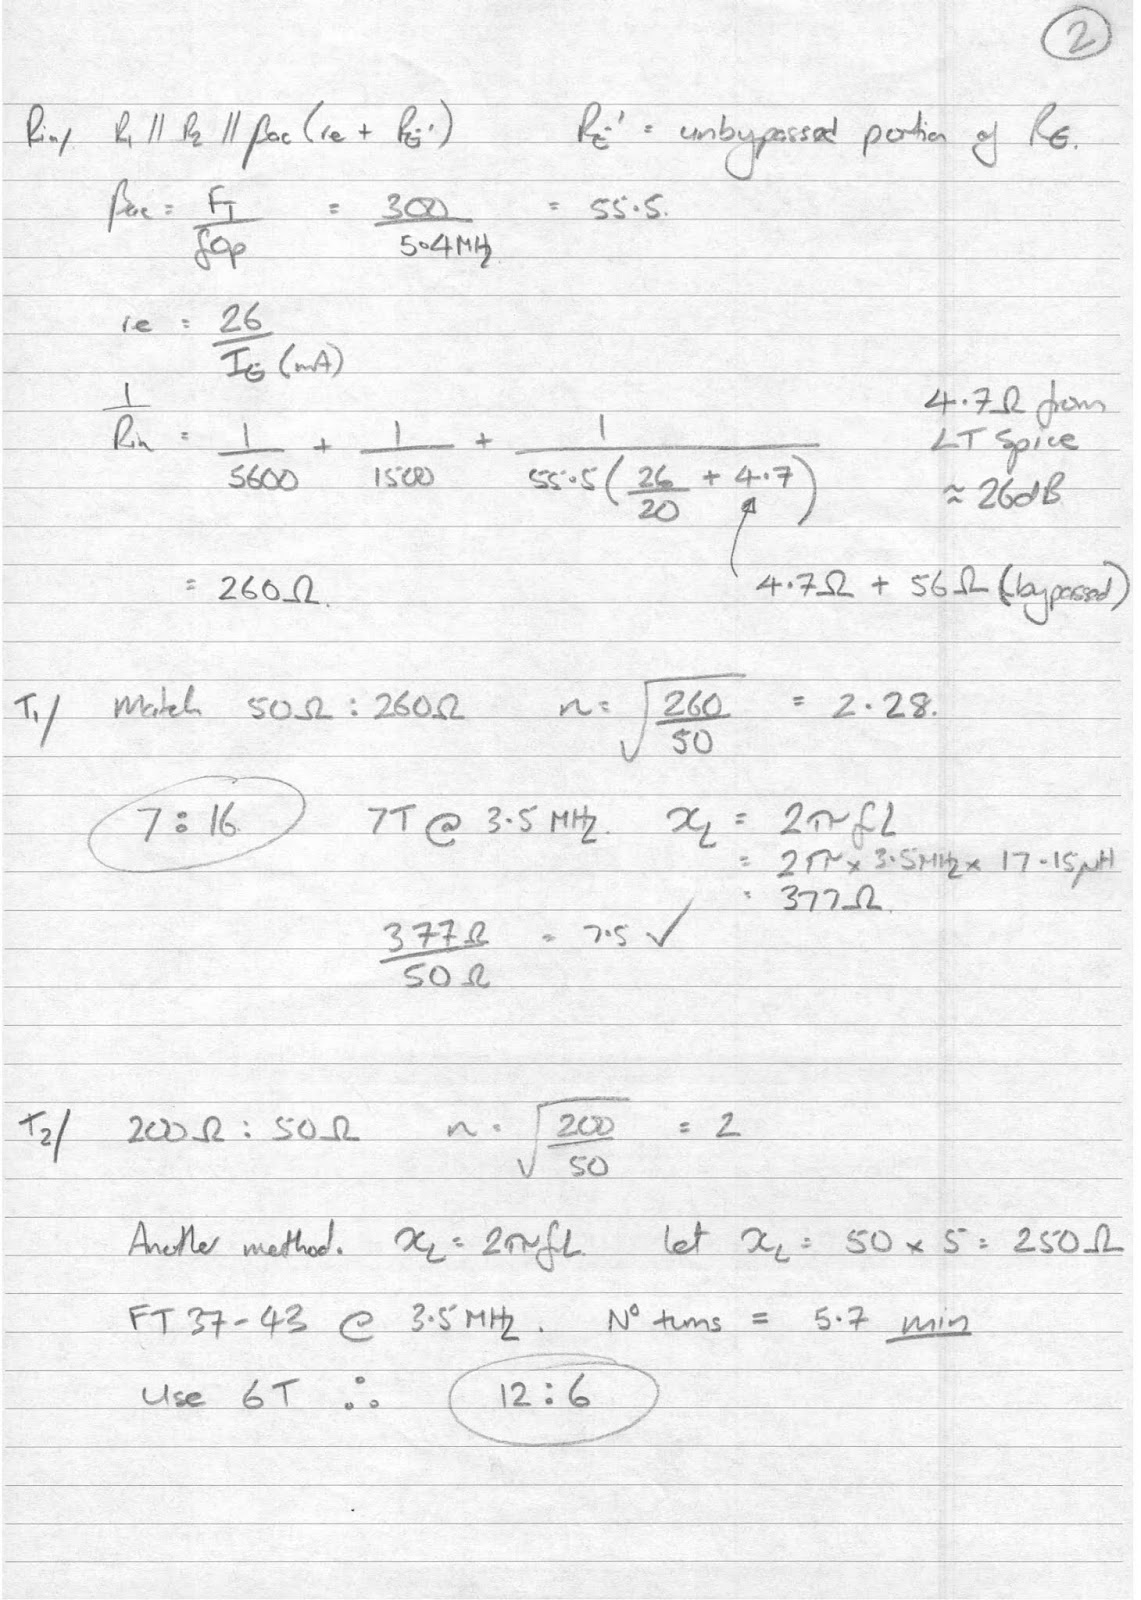 2
Rin/ R₁ // R₂ // βac (re + RE') RE' = unbypassed portion of RE.
βac = FT / fop = 300 / 5.4MHz = 55.5.
re = 26 / IE (mA)
1 / Rin = 1 / 5600 + 1 / 1500 + 1 / 55.5 ( 26 / 20 + 4.7 )
4.7Ω from
LT Spice
≈ 26dB
= 260Ω. 4.7Ω + 56Ω (bypassed)
T₁/ Match 50Ω : 260Ω n = √ 260 / 50 = 2.28.
7:16 7T @ 3.5 MHz. xL = 2πfL
= 2π x 3.5MHz x 17.15μH
= 377Ω.
377Ω / 50Ω = 7.5 ✓
T₂/ 200Ω : 50Ω n = √ 200 / 50 = 2
Another method. xL = 2πfL let xL = 50 x 5 = 250Ω
FT 37-43 @ 3.5MHz. Nº turns = 5.7 min
Use 6T ∴ 12:6